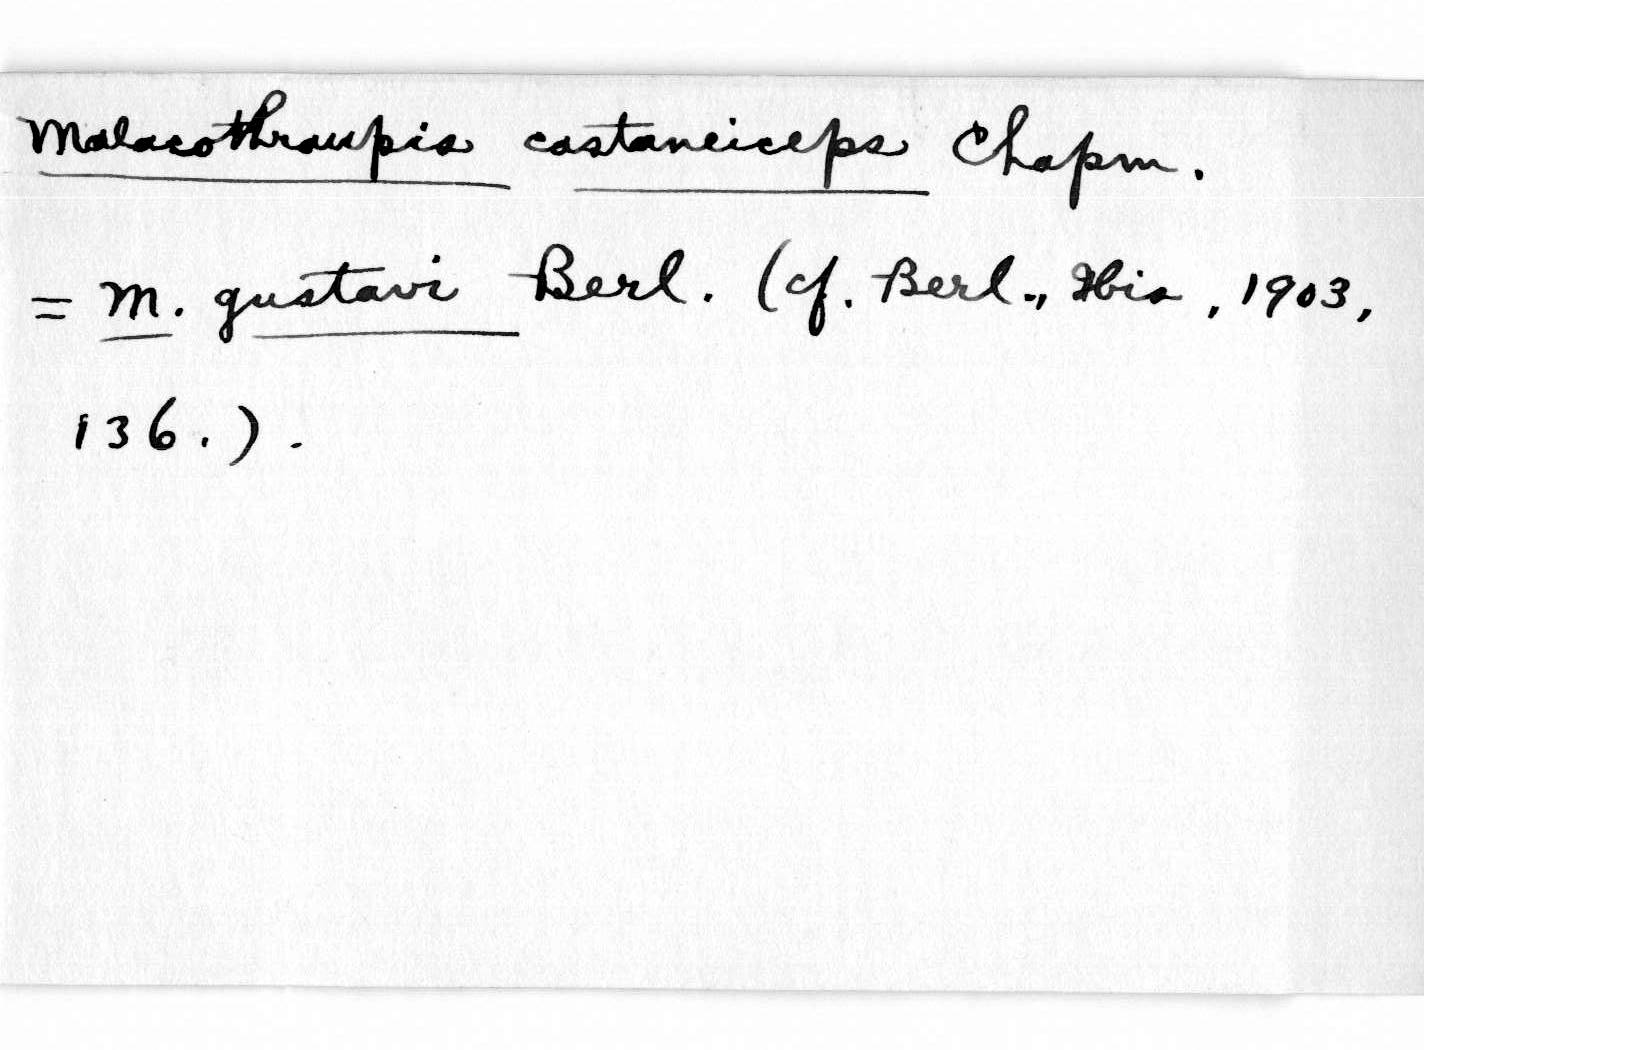 Malacothraupis castaneiceps Chapm.
= M. gustavi Berl. (cf. Berl., Ibis, 1903,
136.).